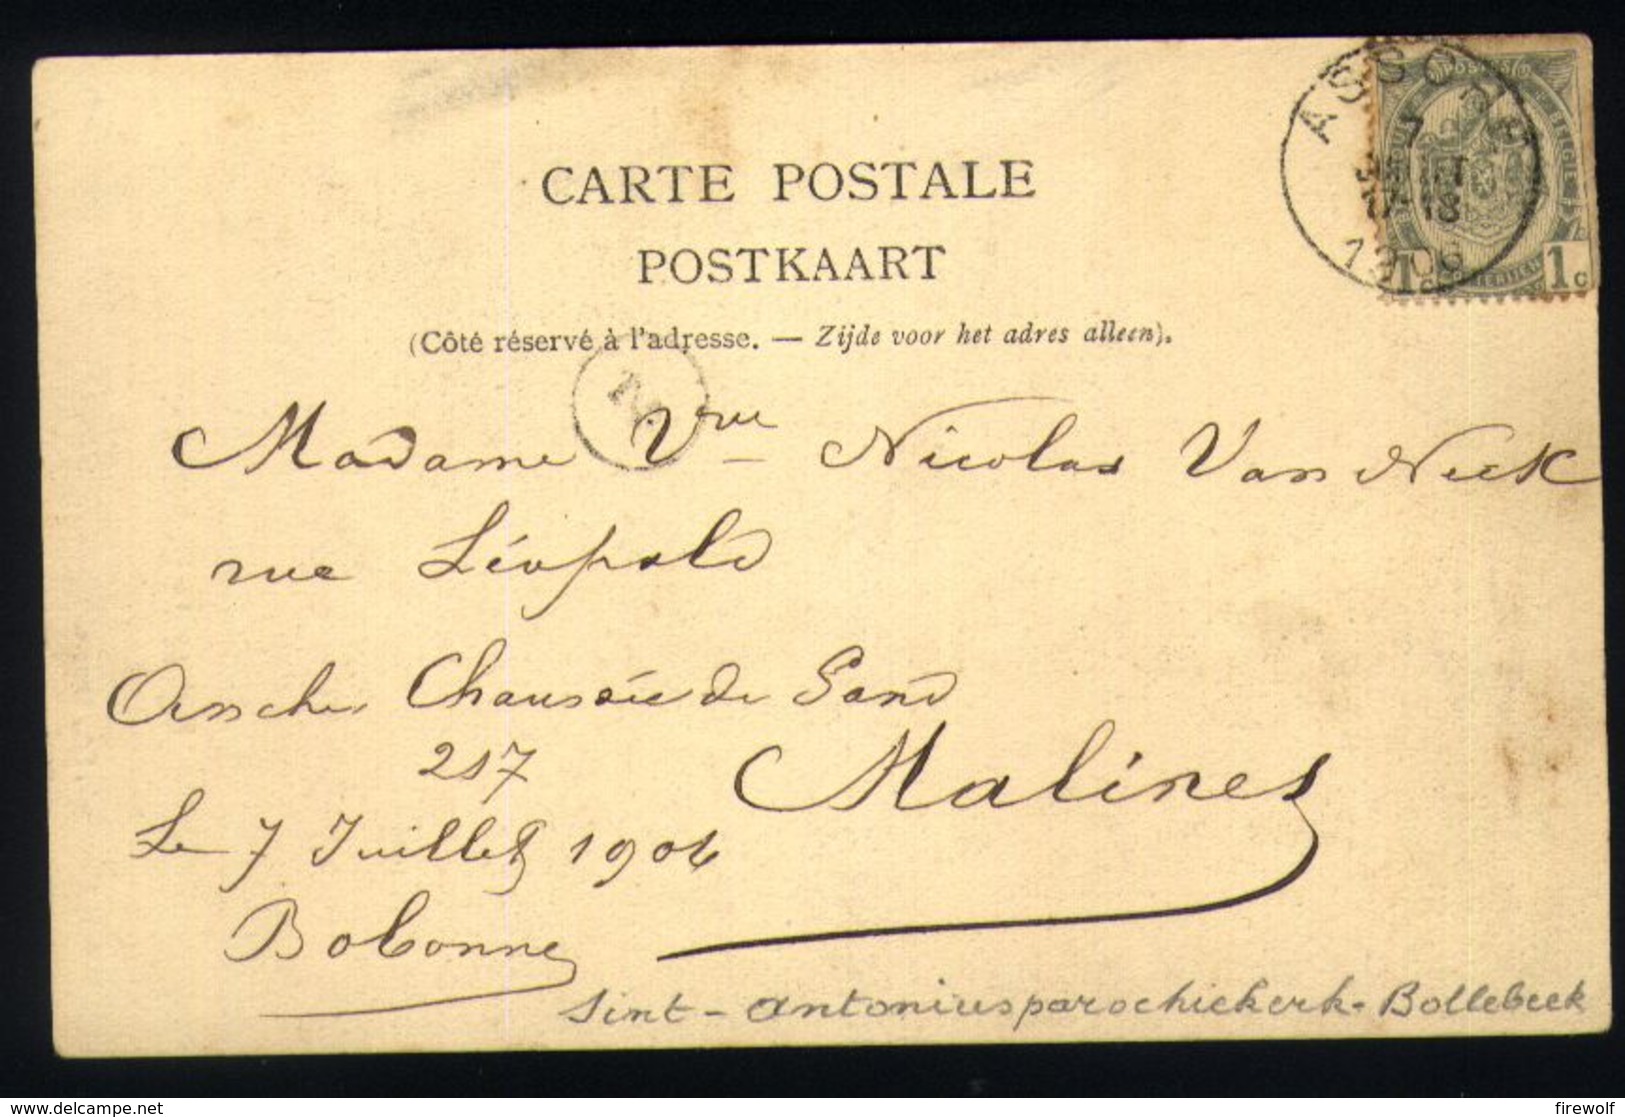 ASSCHE
7
17-18
1906
BELGIE
1c 1c
CARTE POSTALE
POSTKAART
(Côté réservé à l'adresse. — Zijde voor het adres alleen).
Madame Vve Nicolas Van Neck
rue Léopold
Assche Chaussée de Gand
217
Malines
Le 7 Juillet 1906
Bobonne
Sint-Antoniusparochiekerk-Bollebeek
delcampe.net
firewolf